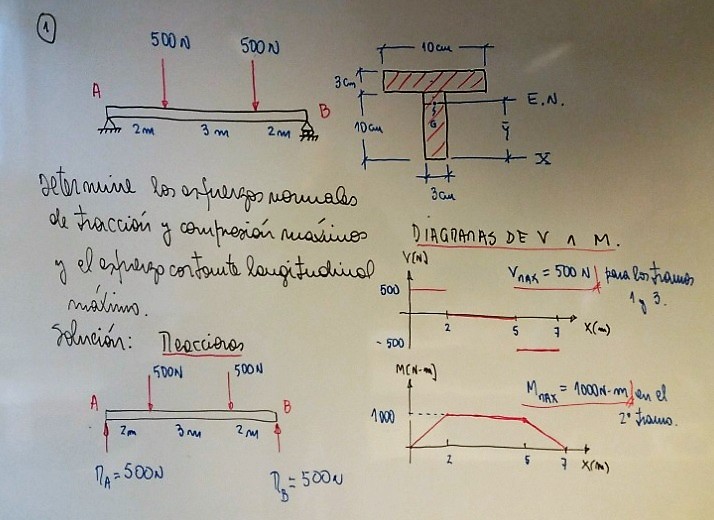 1
500N 500N
A B
2m 3m 2m
10cm
3cm
10cm
E.N.
G
ȳ
X
3cm
Determine los esfuerzos normales
de tracción y compresión máximos
y el esfuerzo cortante longitudinal
máximo.
Solución: Reacciones
500N 500N
A B
2m 3m 2m
R_A = 500N
R_B = 500N
DIAGRAMAS DE V ∧ M.
V(N)
500
-500
2 5 7 X(m)
V_MAX = 500 N para los tramos
1 y 3.
M(N-m)
1000
2 5 7 X(m)
M_MAX = 1000N-m en el
2° tramo.